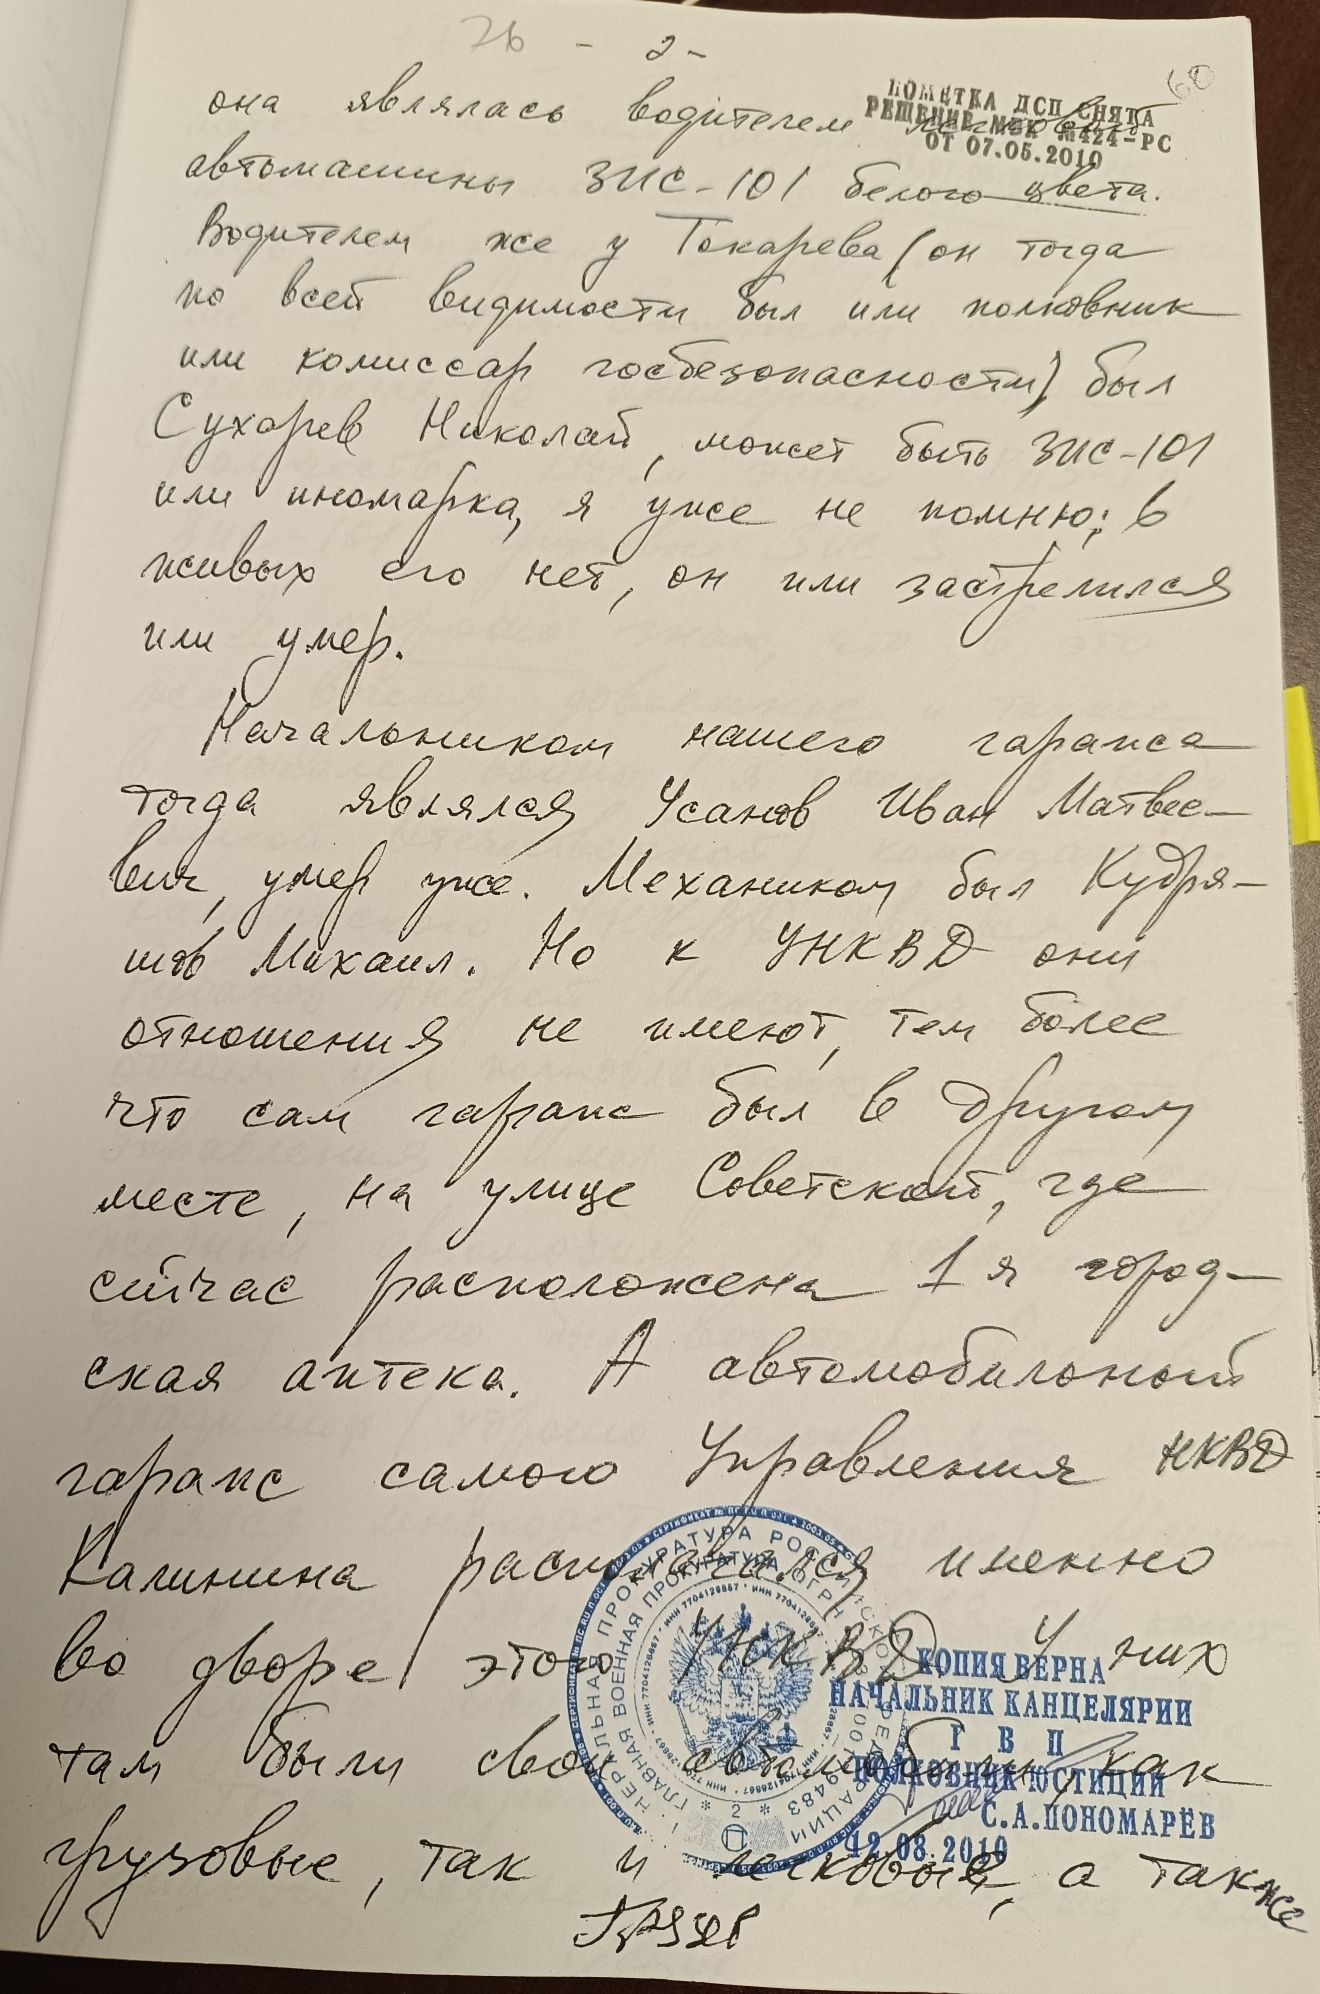 76 - 2 -
60
ПОМЕТКА ДСП СНЯТА
РЕШЕНИЕ МВК №424-РС
ОТ 07.05.2010
она являлась водителем легкового
автомашины ЗИС-101 белого цвета.
Водителем же у Токарева (он тогда
по всей видимости был или полковник
или комиссар госбезопасности) был
Сухарев Николай, может быть ЗИС-101
или иномарка, я уже не помню; в
живых его нет, он или застрелился
или умер.
Начальником нашего гаража
тогда являлся Усанов Иван Матвее-
вич, умер уже. Механиком был Кудря-
шов Михаил. Но к УНКВД они
отношения не имеют, тем более
что сам гараж был в другом
месте, на улице Советской, где
сейчас расположена 1я город-
ская аптека. А автомобильный
гараж самого Управления НКВД
Калинина располагался именно
во дворе этого УНКВД. У них
там были свои автомобили, как
грузовые, так и легковые, а также
ГЕНЕРАЛЬНАЯ ПРОКУРАТУРА РОССИЙСКОЙ ФЕДЕРАЦИИ
ГЛАВНАЯ ВОЕННАЯ ПРОКУРАТУРА
ИНН 7704126667
2
КОПИЯ ВЕРНА
НАЧАЛЬНИК КАНЦЕЛЯРИИ
Г В П
ПОЛКОВНИК ЮСТИЦИИ
С.А.ПОНОМАРЁВ
12.08.2010